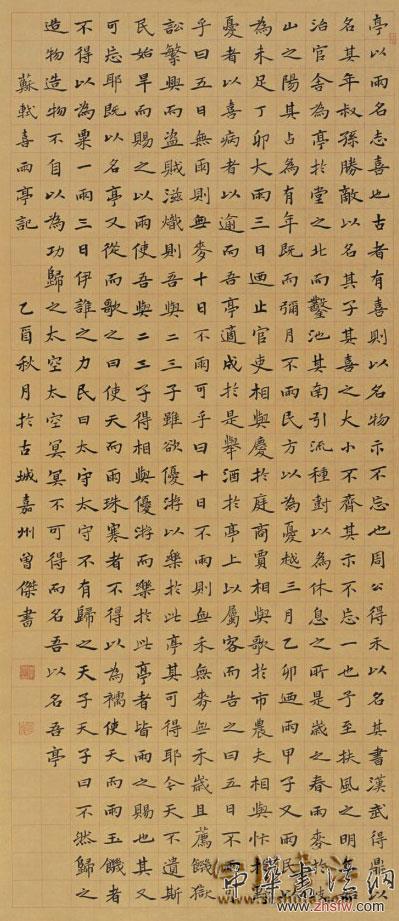 亭以雨名志喜也古者有喜則以名物示不忘也周公得禾以名其書漢武得鼎以
名其年叔孫勝敵以名其子其喜之大小不齊其示不忘一也予至扶風之明年始
治官舍為亭於堂之北而鑿池其南引流種樹以為休息之所是歲之春雨麥於岐
山之陽其占為有年既而彌月不雨民方以為憂越三月乙卯迺雨甲子又雨民以
為未足丁卯大雨三日迺止官吏相與慶於庭商賈相與歌於市農夫相與忭於野
憂者以喜病者以逾而吾亭適成於是舉酒於亭上以屬客而告之曰五日不雨可
乎曰五日無雨則無麥十日不雨可乎曰十日不雨則無禾無麥無禾歲且薦饑獄
訟繁興而盜賊滋熾則吾與二三子雖欲優游以樂於此亭其可得耶今天不遺斯
民始旱而賜之以雨使吾與二三子得相與優游而樂於此亭者皆雨之賜也其又
可忘耶既以名亭又從而歌之曰使天而雨珠寒者不得以為襦使天而雨玉饑者
不得以為粟一雨三日伊誰之力民曰太守太守不有歸之天子天子曰不然歸之
造物造物不自以為功歸之太空太空冥冥不可得而名吾以名吾亭
蘇軾喜雨亭記 乙酉秋月於古城嘉州曾傑書
中華書法網
www.zhsfw.com